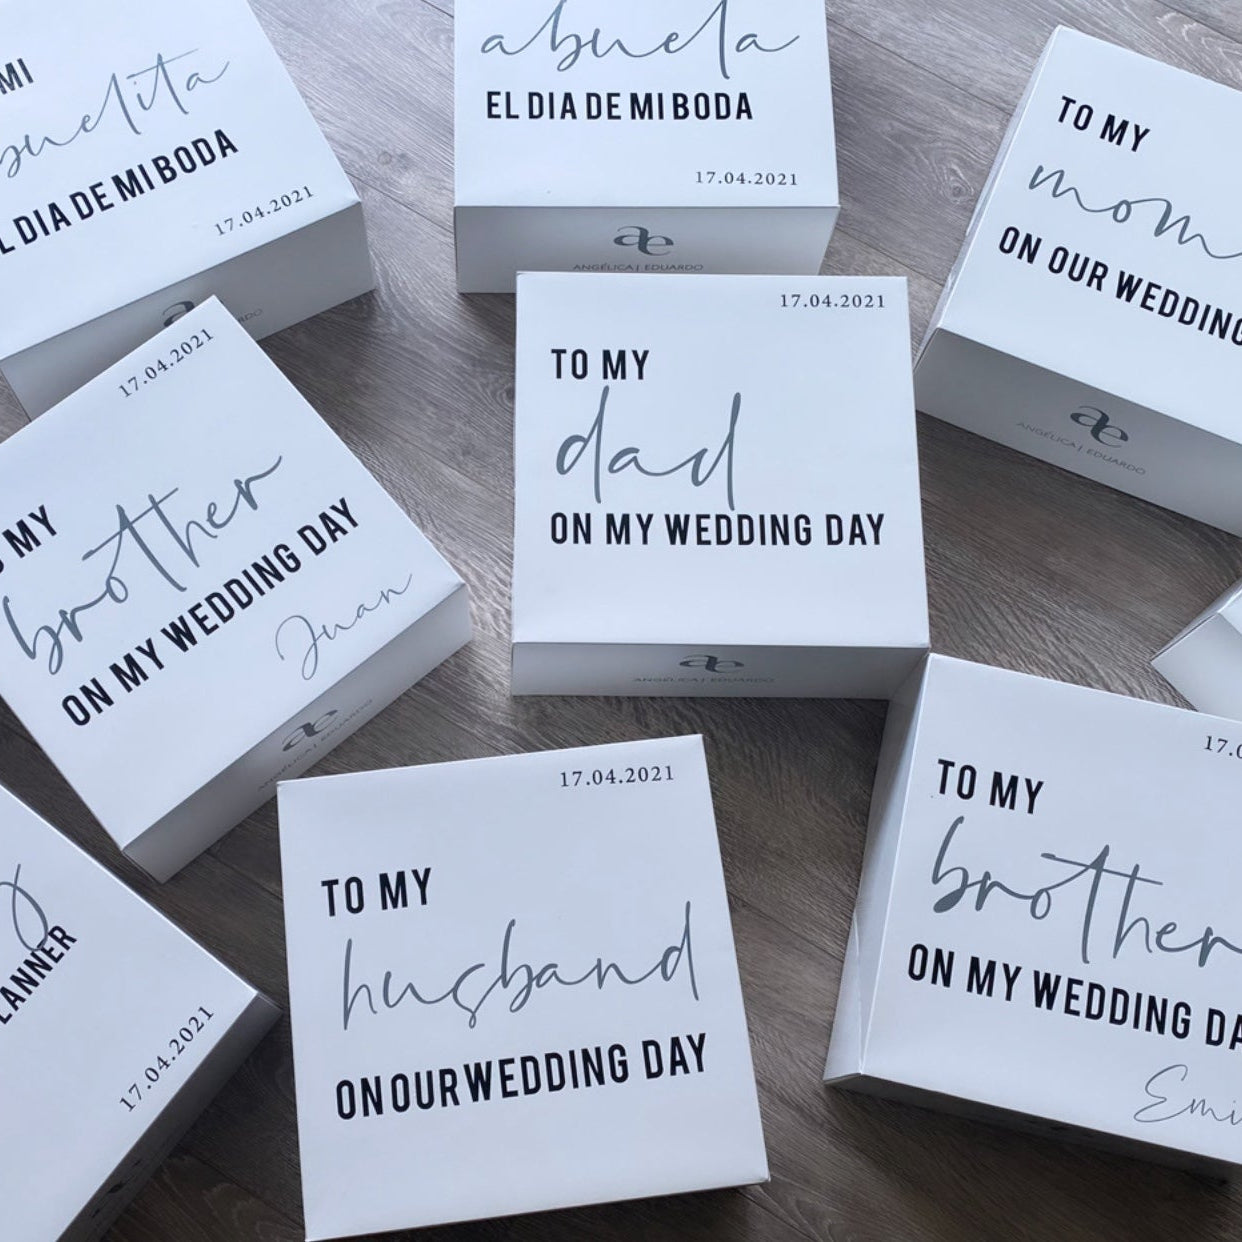 MI
DIA DE MI BODA
17.04.2021
abuela
EL DIA DE MI BODA
17.04.2021
ae
ANGÉLICA | EDUARDO
TO MY
mom
ON OUR WEDDING
ae
ANGÉLICA | EDUARDO
17.04.2021
MY
brother
ON MY WEDDING DAY
Juan
ae
ANGÉLICA | EDUARDO
17.04.2021
TO MY
dad
ON MY WEDDING DAY
ae
ANGÉLICA | EDUARDO
17.04.2021
17.04.2021
TO MY
husband
ON OUR WEDDING DAY
TO MY
brother
ON MY WEDDING